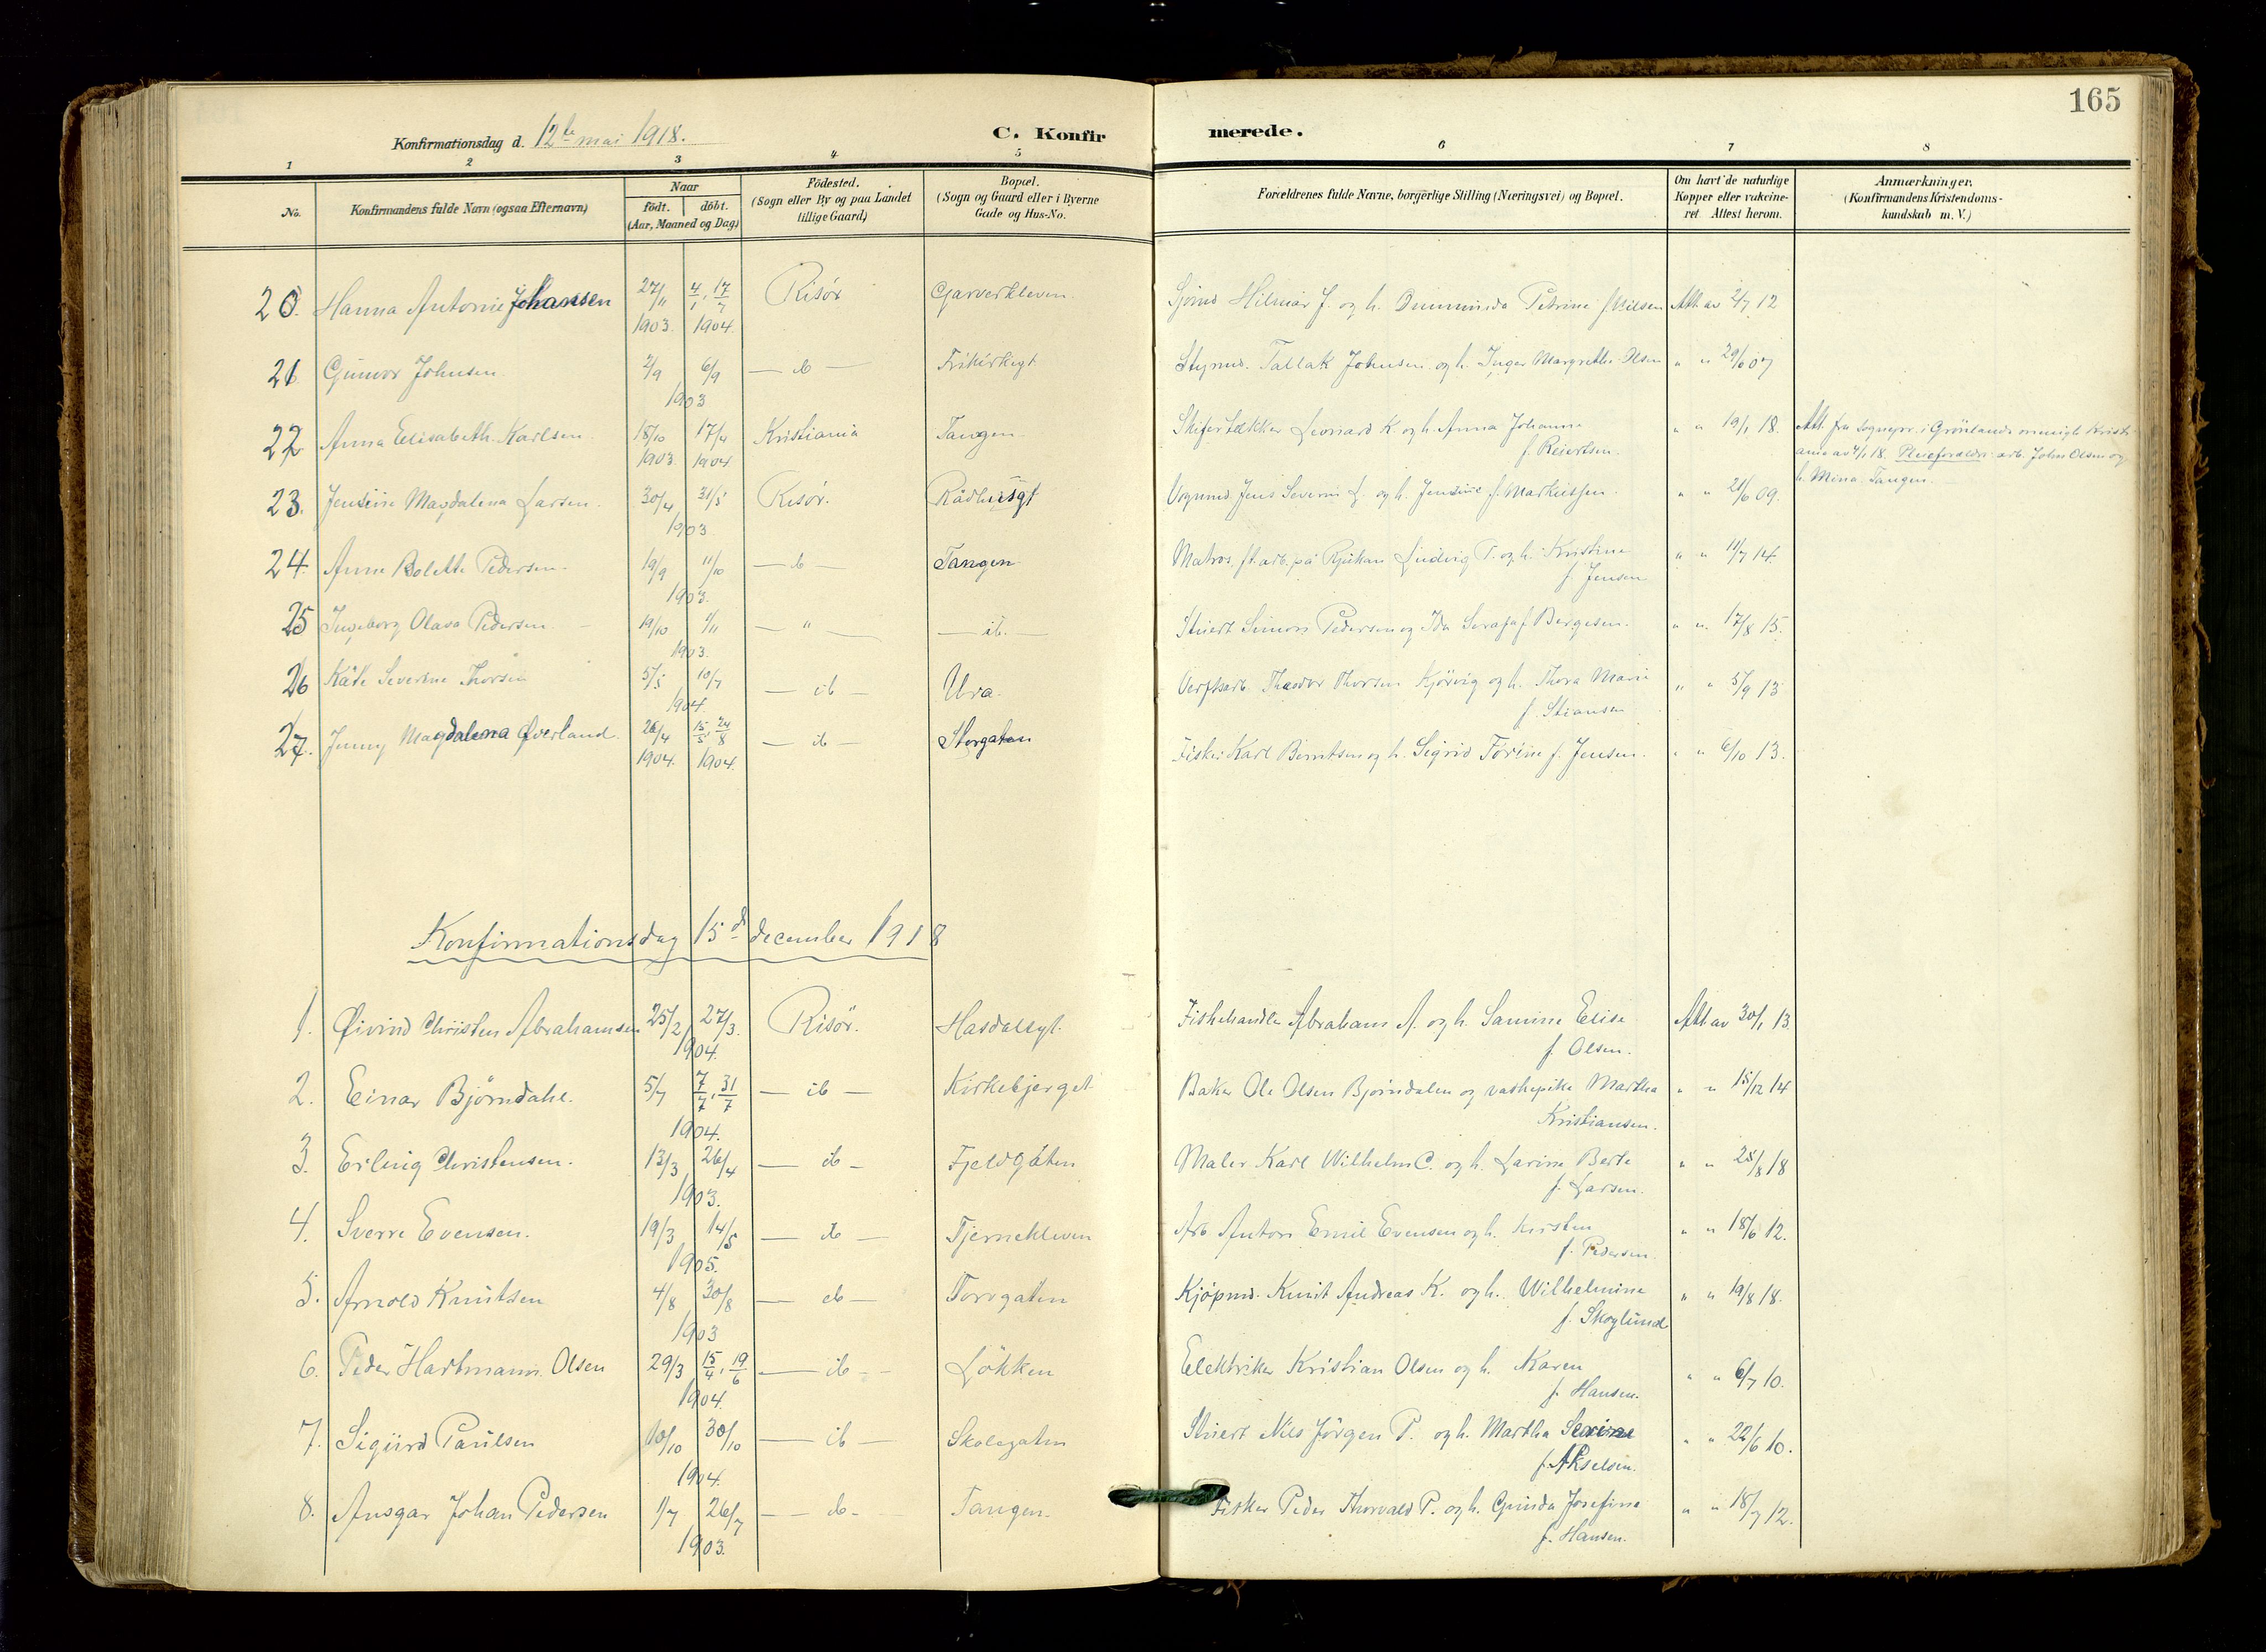 165
Konfirmationsdag d. 12te mai 1918.
C. Konfirmerede.
1 2 3 4 5 6 7 8
No.
Konfirmandens fulde Navn (ogsaa Efternavn)
Naar
födt. döbt.
(Aar, Maaned og Dag)
Födested.
(Sogn eller By og paa Landet
tillige Gaard)
Bopæl.
(Sogn og Gaard eller i Byerne
Gade og Hus-No.
Forældrenes fulde Navne, borgerlige Stilling (Næringsvei) og Bopæl.
Om havt de naturlige
Kopper eller vakcine-
ret Attest herom.
Anmærkninger.
(Konfirmandens Kristendoms-
kundskab m. V.)
20. Hanna Antonie Johansen 27/11 4/1, 17/7 Risör Garverkleven. Sjömd Hilmar J. og h. Petrine f. Nilsen Att. av 2/7 12
1903. 1904.
21 Gunvor Johnsen. 2/9 6/9 — ib — Frikirkegt Styrmd. Tallak Johnsen og h. Inger Margrethe Olsen " " 29/6 07
1903
22 Anna Elisabeth Karlsen. 18/10 17/4 Kristiania Tangen Skifertækker Leonard K. og h. Anna Johanne " " 19/1 18. Att. fra sogepr. i Grönlands menigh. Kristi-
1903. 1904 f. Reiertsen. ania av 4/1 18. Pleieforældre: arb. John Olsen og
h. Mina. Tangen.
23. Jensine Magdalena Larsen. 30/4 31/5 Risör. Rådhusgt Vognmd. Jens Severin L. og h. Jensine f. Markussen. " " 21/6 09.
1903
24. Anne Bolette Pedersen. 19/9 11/10 — ib — Tangen Matros, f.t. arb. på Rjukan Ludvig P. og h. Kristine " " 11/7 14.
1903. f. Jensen
25 Ingeborg Olava Pedersen. 19/10 1/11 — " — — ib. — Stuert Simon Pedersen og Ida Serafia f. Bergesen. " " 17/8 15.
1903.
26 Kåte Severine Thorsen 5/5 10/7 — ib — Ura. Verftsarb. Theodor Thorsen Kjörvig og h. Thora Marie " " 5/9 13
1904. f. Stiansen
27. Jenny Magdalena Øverland. 26/4 15/5, 24/8 — ib — Storgaten Fisker Karl Berntsen og h. Sigrid Torine f. Jensen. " " 6/10 13.
1904. 1904.
Konfirmationsdag 15d december 1918
1. Øivind Christen Abrahamsen 25/2 27/3. Risör. Hasdalsgt. Fiskehandler Abraham A. og h. Samine Elise Att av 30/1 13.
1904. f. Olsen.
2. Einar Björndahl. 5/7 7/7, 31/7 — ib — Kirkebjerget Baker Ole Olsen Bjørndalen og vaskepike Martha " " 15/12 14
1904. Kristiansen.
3. Erling Christensen. 13/3 26/4 — ib — Fjeldgaten Maler Karl Wilhelm C. og h. Larine Berte " " 28/8 18
1903. f. Larsen.
4. Sverre Evensen. 19/3 14/5 — ib — Tjernekleven Arb Anton Emil Evensen og h. Kristen " " 18/6 12.
1905. f. Pedersen.
5. Arnold Knutsen 4/8 30/8 — ib — Torvgaten Kjöpmd. Knut Andreas K. og h. Wilhelmine " " 19/8 18.
1903 f. Skoglund
6. Peder Hartmann Olsen 29/3 15/4, 19/6 — ib — Lökken Elektriker Kristian Olsen og h. Karen " " 6/7 10.
1904. f. Hansen.
7. Sigurd Paulsen 10/10 30/10 — ib — Skolegaten Stuert Nils Jörgen P. og h. Martha Sevine " " 22/6 10.
1904. f. Akselsen.
8. Ansgar Johan Pedersen 1/7 26/7 — ib — Tangen. Fisker Peder Thorvald P. og h. Gunda Josefine " " 18/7 12.
1903. f. Hansen.